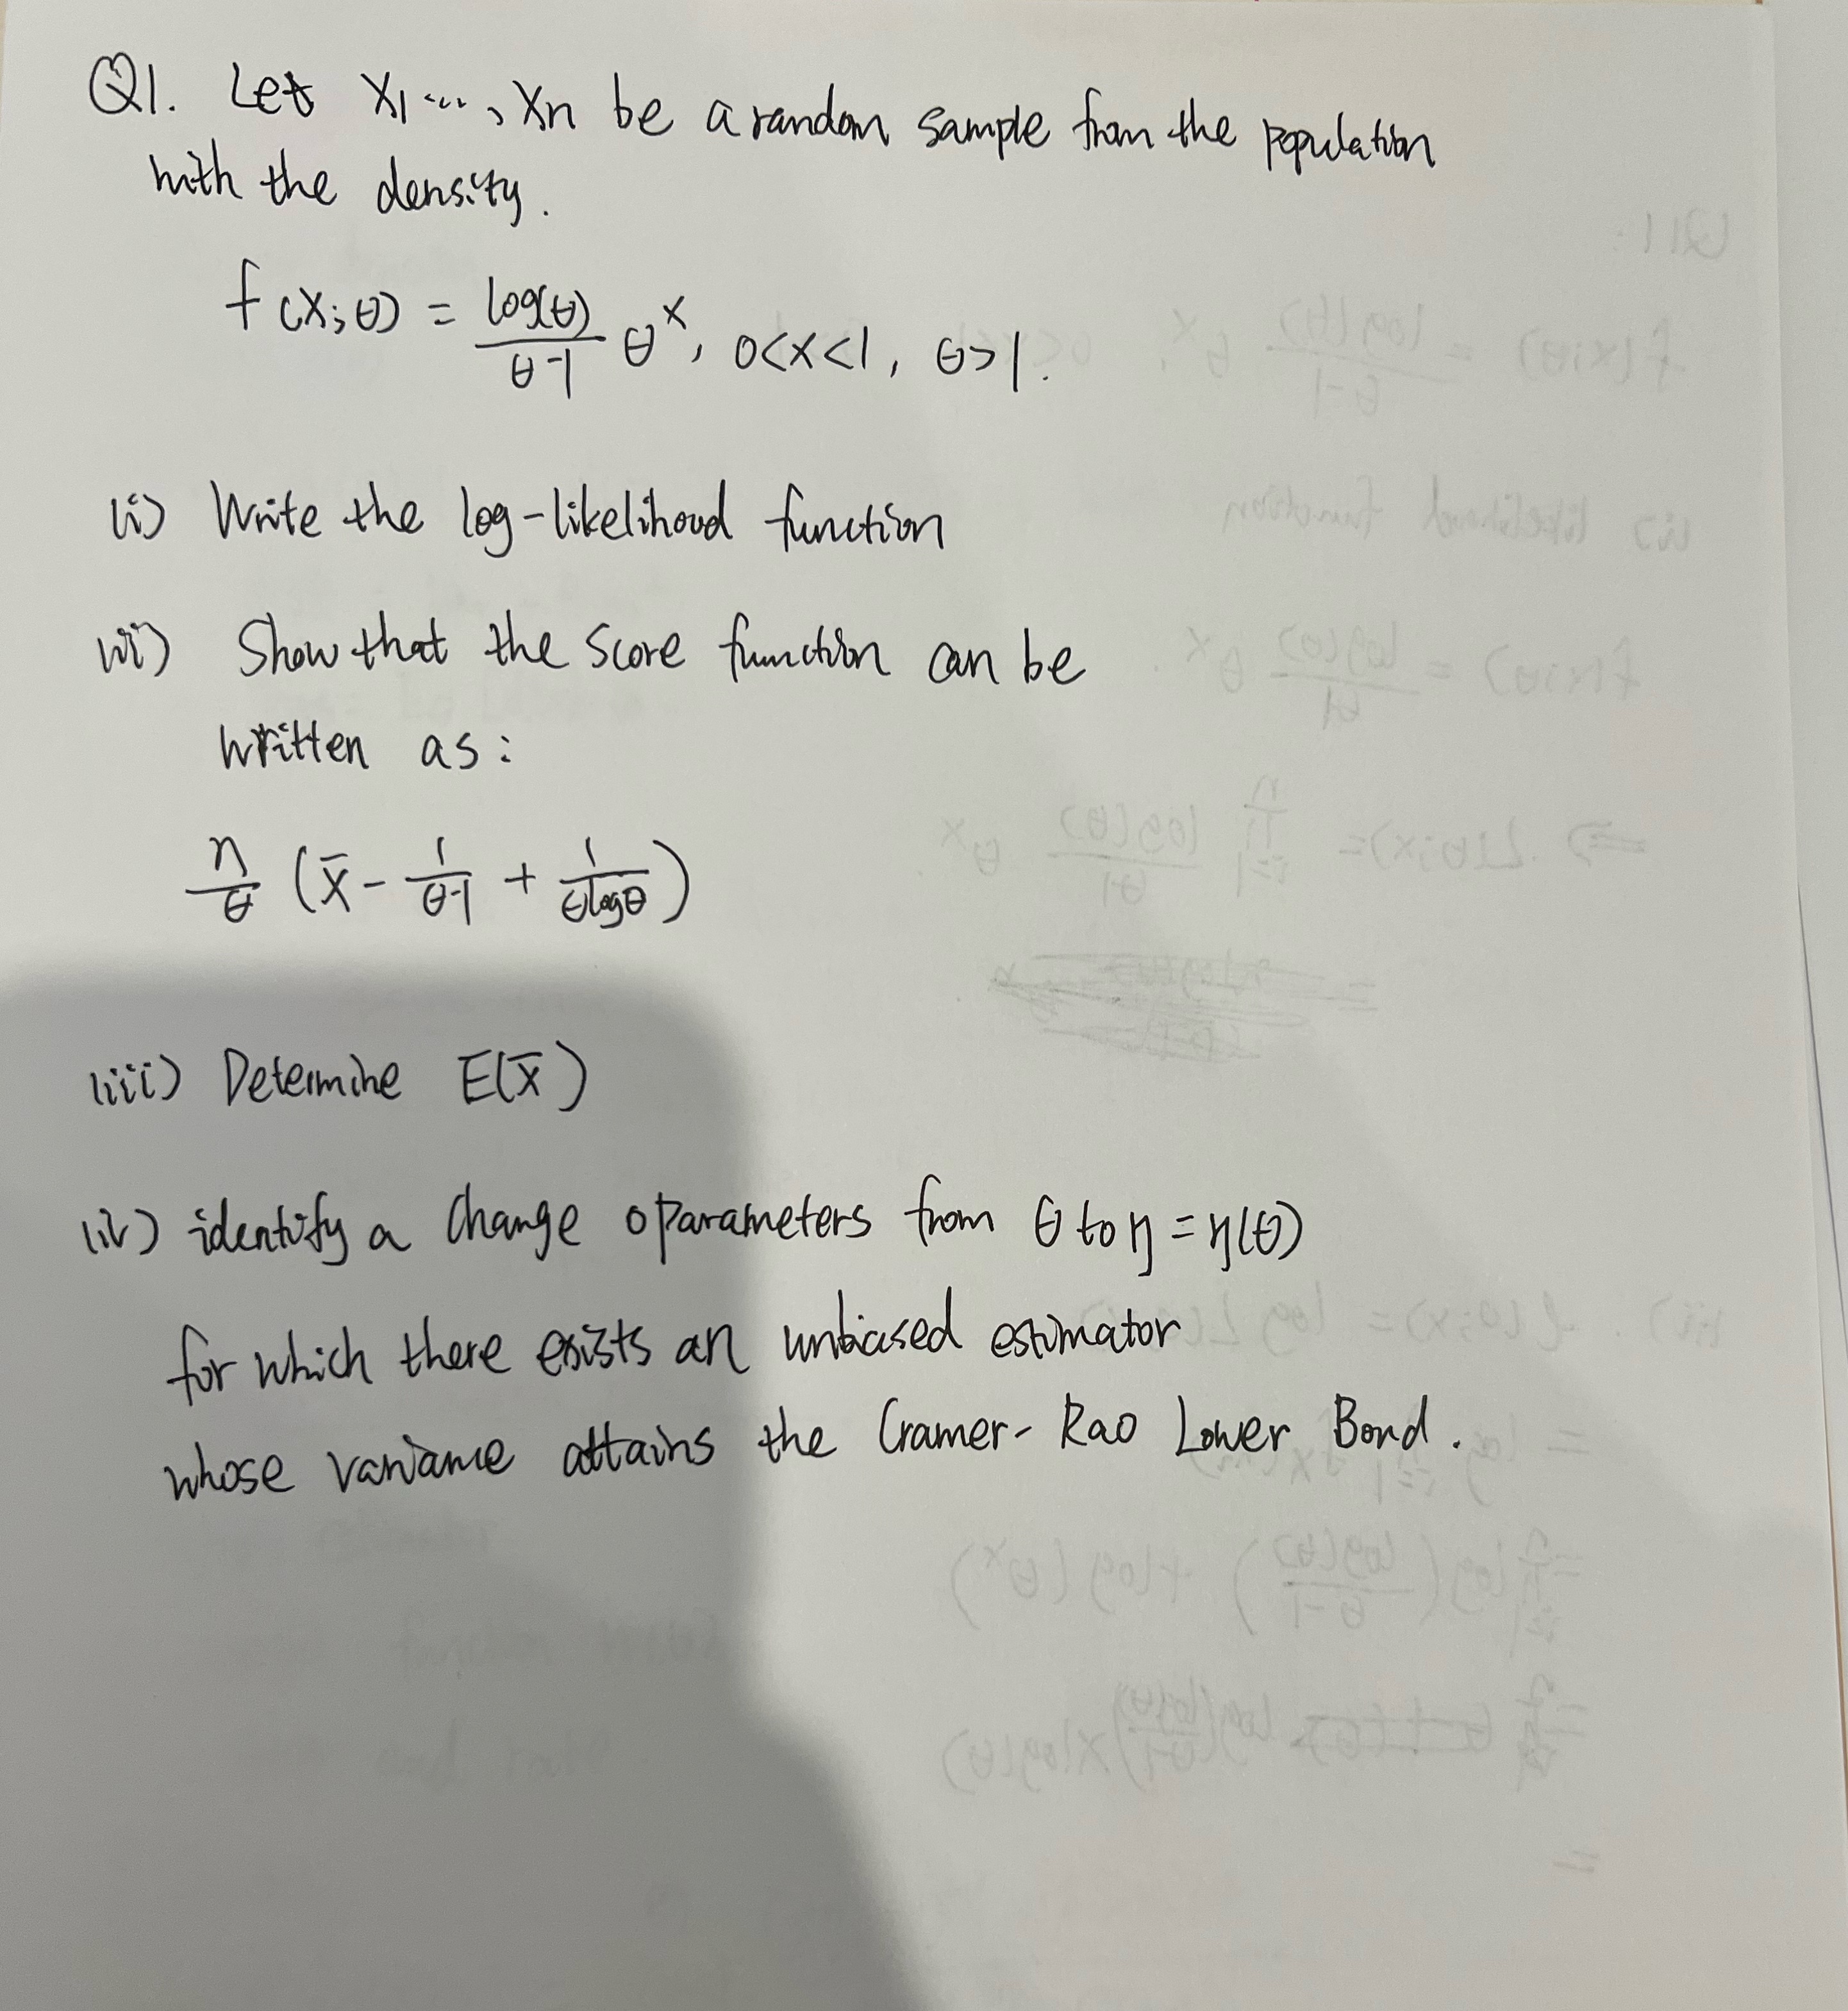 Q1. Let X1 ..., Xn be a random sample from the population
with the density.
f(x;θ) = log(θ)/(θ-1) θ^x, 0<x<1, θ>1.
(i) Write the log-likelihood function
(ii) Show that the score function can be
written as:
n/θ (x̄ - 1/(θ-1) + 1/(θlogθ))
(iii) Determine E(x̄)
(iv) identify a change o parameters from θ to η = η(θ)
for which there exists an unbiased estimator
whose variance attains the Cramer- Rao Lower Bond.